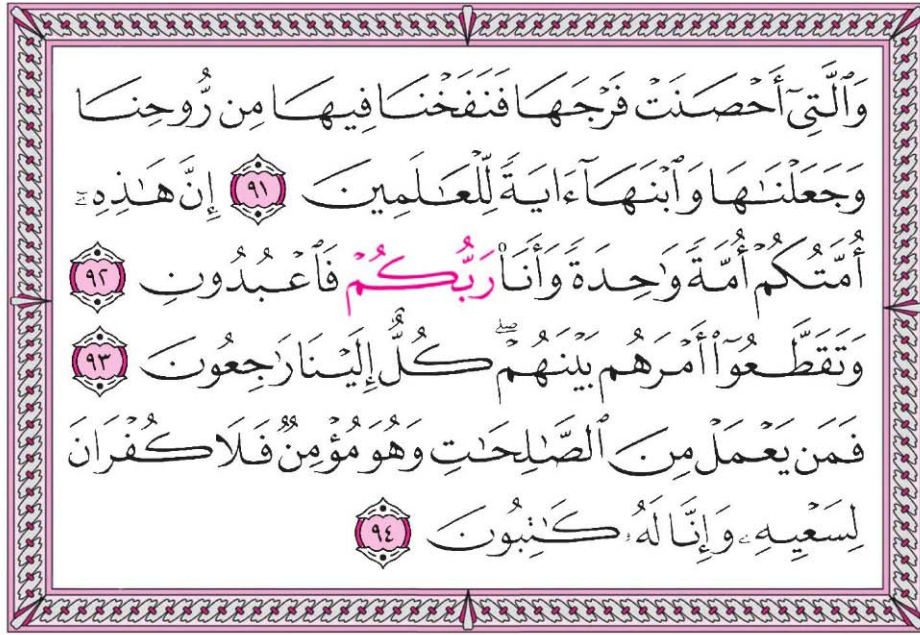 وَٱلَّتِىٓ أَحۡصَنَتۡ فَرۡجَهَا فَنَفَخۡنَا فِيهَا مِن رُّوحِنَا
وَجَعَلۡنَٰهَا وَٱبۡنَهَآ ءَايَةٗ لِّلۡعَٰلَمِينَ ٩١ إِنَّ هَٰذِهِۦٓ
أُمَّتُكُمۡ أُمَّةٗ وَٰحِدَةٗ وَأَنَا۠ رَبُّكُمۡ فَٱعۡبُدُونِ ٩٢
وَتَقَطَّعُوٓاْ أَمۡرَهُم بَيۡنَهُمۡۖ كُلٌّ إِلَيۡنَا رَٰجِعُونَ ٩٣
فَمَن يَعۡمَلۡ مِنَ ٱلصَّٰلِحَٰتِ وَهُوَ مُؤۡمِنٞ فَلَا كُفۡرَانَ
لِسَعۡيِهِۦ وَإِنَّا لَهُۥ كَٰتِبُونَ ٩٤